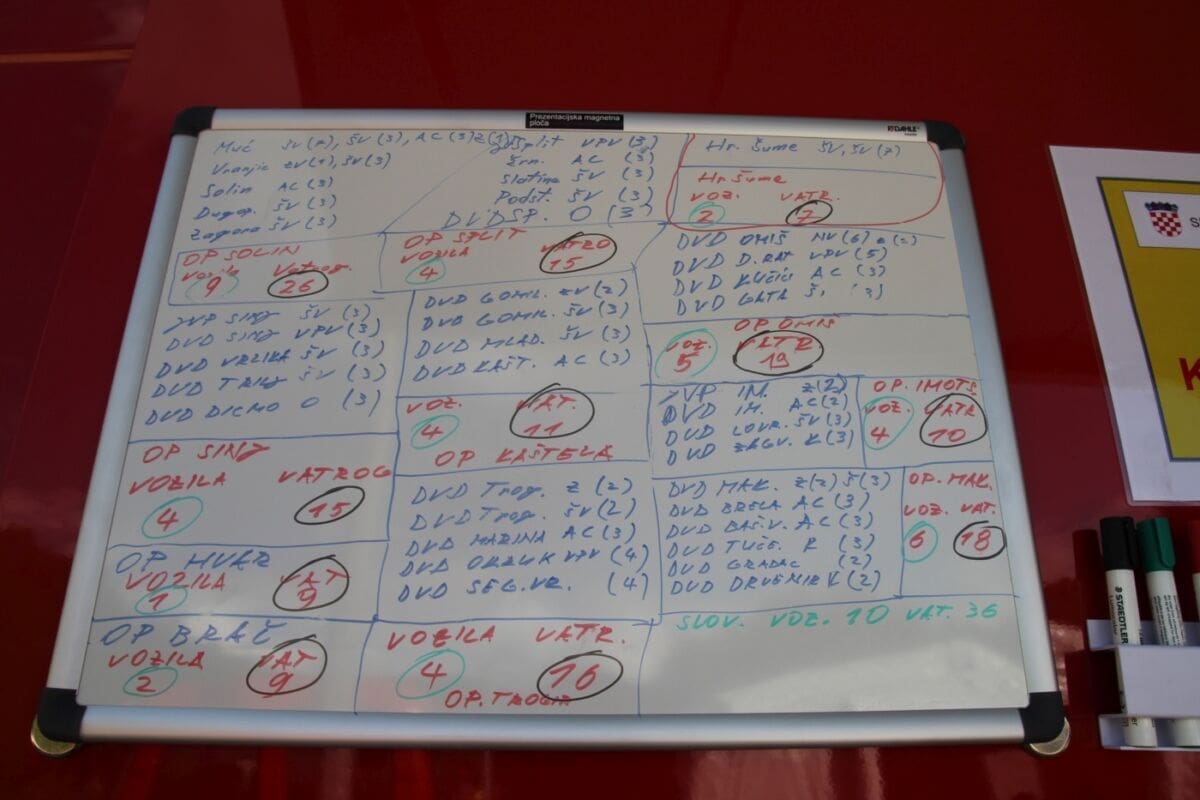 Prezentacijska magnetna
ploča
DAHLE
Muć ŠV (7), ŠV (3), AC (3)
Vranjic ZV (4), ŠV (3)
Solin AC (3)
Dugop. ŠV (3)
Zagora ŠV (3)
OP SOLIN
Vozila Vatrog.
9 26
Split VPV (3)
Žrn. AC (3)
Slatine ŠV (3)
Podst. ŠV (3)
DVD SP. O (3)
OP SPLIT
VOZILA VATRO
4 15
Hr. Šume ŠV, ŠV (7)
Hr Šume
VOZ. VATR.
2 7
DVD OMIŠ NV (6)
DVD D.RAT VPV (5)
DVD KUČIĆE AC (3)
DVD GATA (3)
OP OMIŠ
VOZ. VATR
5 19
JVP SINJ ŠV (3)
DVD SINJ VPV (3)
DVD VRLIKA ŠV (3)
DVD TRILJ ŠV (3)
DVD DICMO O (3)
OP SINJ
VOZILA VATROG
4 15
DVD GOMIL. ZV (2)
DVD GOMIL. ŠV (3)
DVD MLAD. ŠV (3)
DVD KAŠT. AC (3)
VOZ. VAT.
4 11
OP KAŠTELA
JVP IM. Z (2)
DVD IM. AC (2)
DVD LOVR. ŠV (3)
DVD ZAGV. K (3)
OP. IMOTS.
VOZ. VATR
4 10
DVD Trog. Z (2)
DVD Trog. ŠV (2)
DVD MARINA AC (3)
DVD OKRUK VPV (4)
DVD SEG.VR. (4)
VOZILA VATR.
4 16
OP. TROGIR
DVD MAK. Z (2) Š (3)
DVD BRELA AC (3)
DVD BAŠ.V. AC (3)
DVD TUČE. K (3)
DVD GRADAC (2)
DVD DRVENIK K (2)
OP. MAK.
VOZ. VAT.
6 18
OP HVAR
VOZILA VAT
1 9
OP BRAČ
VOZILA VAT
2 9
SLOV. VOZ. 10 VAT. 36
S
K
STAEDTLER